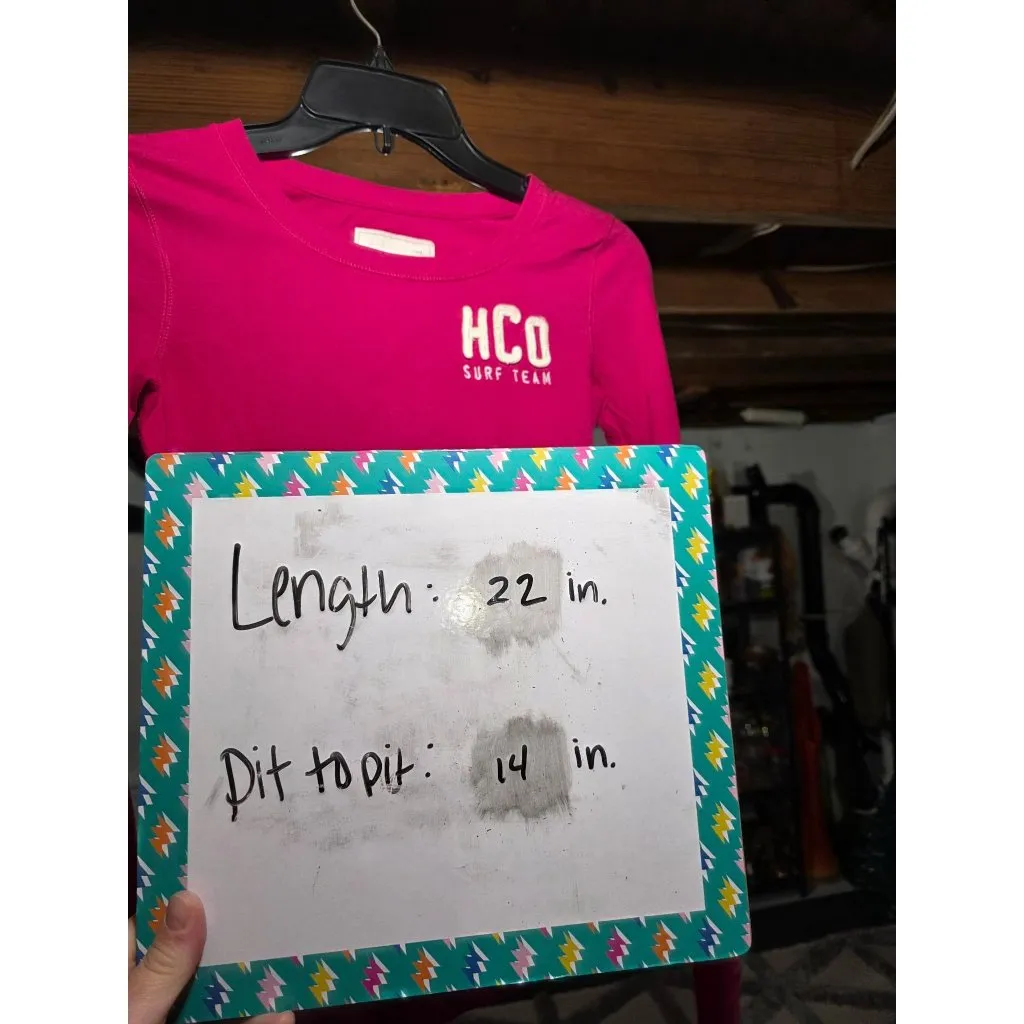 HCO
SURF TEAM
Length: 22 in.
Pit to pit: 14 in.